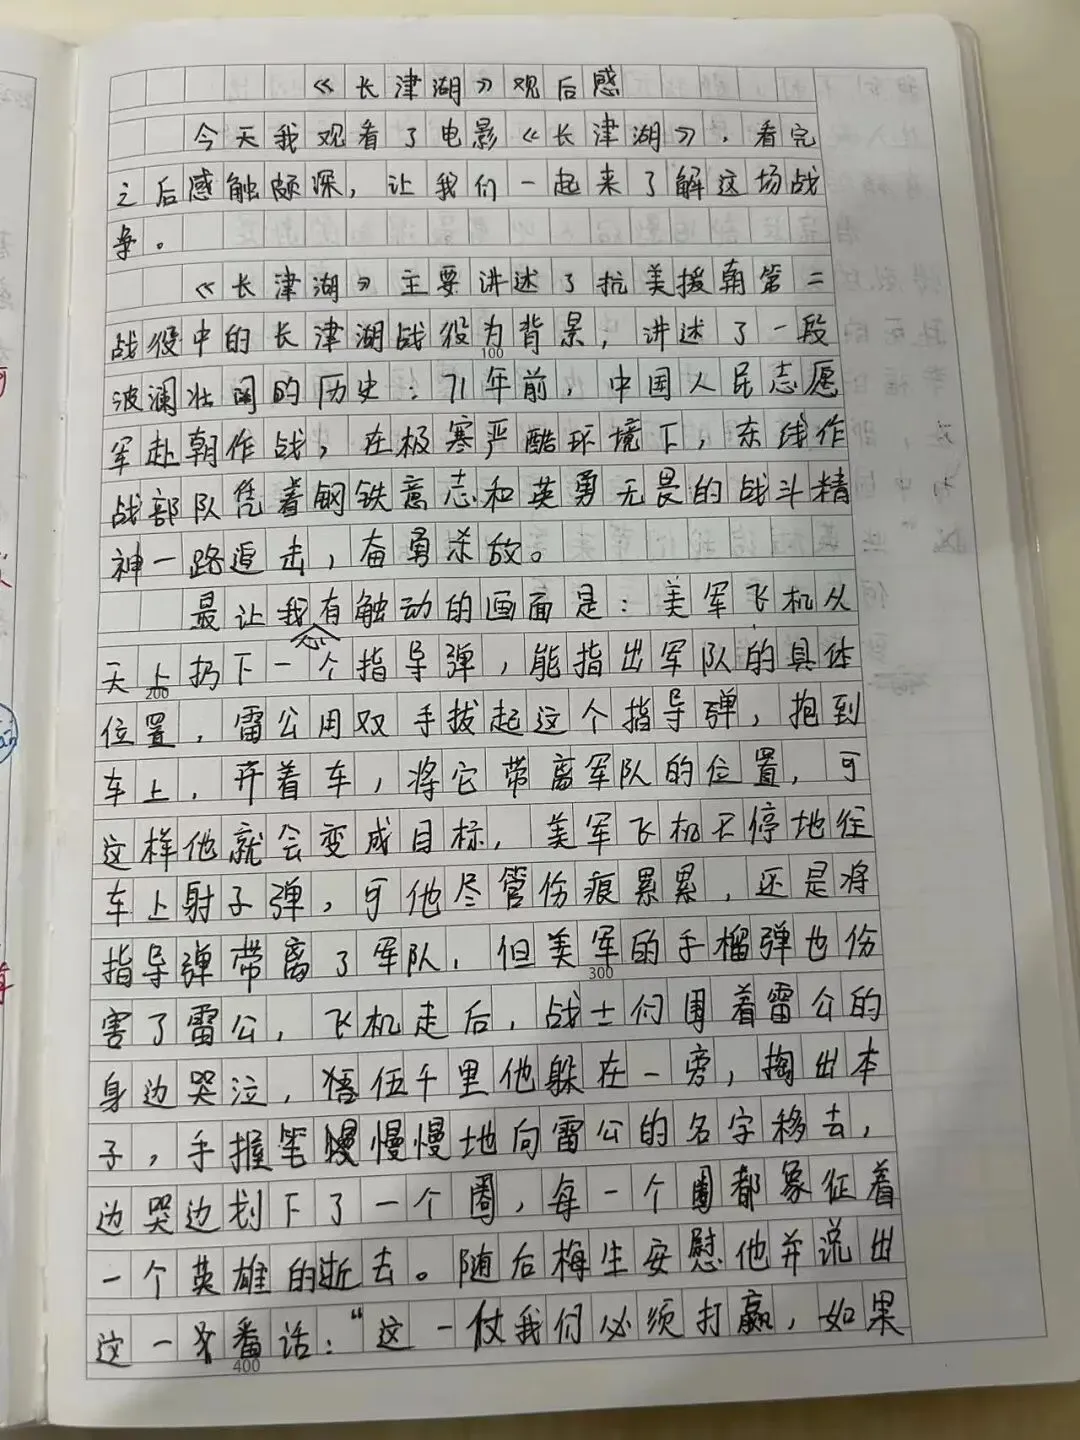 《长津湖》观后感
今天我观看了电影《长津湖》，看完
之后感触颇深，让我们一起来了解这场战
争。
《长津湖》主要讲述了抗美援朝第二
战役中的长津湖战役为背景，讲述了一段
100
波澜壮阔的历史：71年前，中国人民志愿
军赴朝作战，在极寒严酷环境下，东线作
战部队凭着钢铁意志和英勇无畏的战斗精
神一路追击，奋勇杀敌。
最让我有触动的画面是：美军飞机从
天上扔下一个指导弹，能指出军队的具体
200
位置，雷公用双手拔起这个指导弹，抱到
车上，开着车，将它带离军队的位置，可
这样他就会变成目标，美军飞机不停地往
车上射子弹，可他尽管伤痕累累，还是将
指导弹带离了军队，但美军的手榴弹也伤
300
害了雷公，飞机走后，战士们围着雷公的
身边哭泣，悟伍千里他躲在一旁，掏出本
子，手握笔慢慢慢地向雷公的名字移去，
边哭边划下了一个圈，每一个圈都象征着
一个英雄的逝去。随后梅生安慰他并说出
这一番话：“这一仗我们必须打赢，如果
400